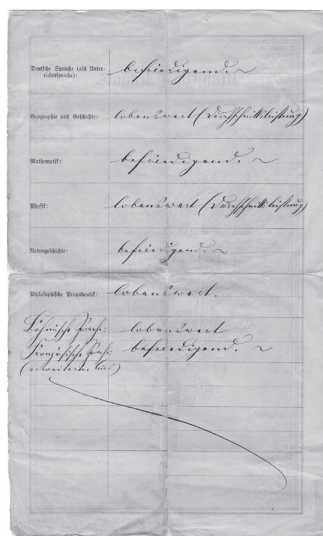 Deutsche Sprache (als Unter-
richtssprache): befriedigend.
Geographie und Geschichte: lobenswert (Durchschnittsleistung)
Mathematik: befriedigend.
Physik: lobenswert (Durchschnittsleistung)
Naturgeschichte: befriedigend.
Philosophische Propädeutik: lobenswert.
Böhmische Sprache: lobenswert
Französische Sprache: befriedigend.